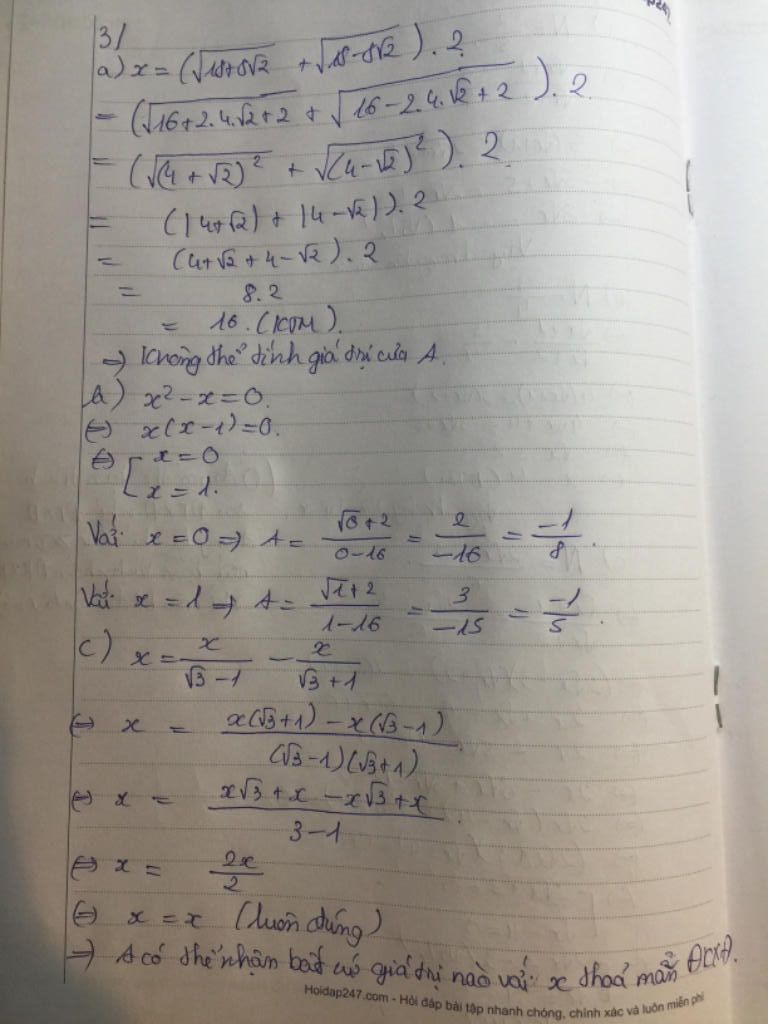 3/
a) x = (√18+8√2 + √18-8√2). 2
= (√16+2.4.√2+2 + √16-2.4.√2+2). 2
= (√(4+√2)² + √(4-√2)²). 2
= (|4+√2| + |4-√2|). 2
= (4+√2+4-√2). 2
= 8.2
= 16. (KTM).
=> Không thể tính giá trị của A.
b) x² - x = 0.
<=> x(x-1)=0.
<=> [ x = 0
x = 1.
Với x = 0 => A = √0+2 / 0-16 = 2 / -16 = -1 / 8.
Với x = 1 => A = √1+2 / 1-16 = 3 / -15 = -1 / 5.
c) x = x / √3-1 - x / √3+1
<=> x = x(√3+1) - x(√3-1) / (√3-1)(√3+1).
<=> x = x√3+x-x√3+x / 3-1.
<=> x = 2x / 2
<=> x = x (luôn đúng)
=> A có thể nhận bất cứ giá trị nào với x thoả mãn ĐKXĐ.
Hoidap247.com - Hỏi đáp bài tập nhanh chóng, chính xác và luôn miễn phí